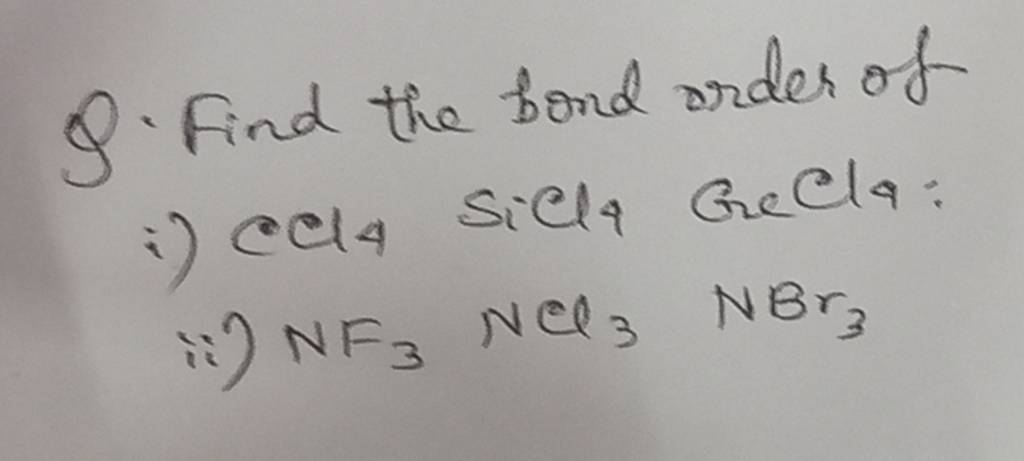 Q. Find the bond order of
i) CCl4 SiCl4 GeCl4:
ii) NF3 NCl3 NBr3